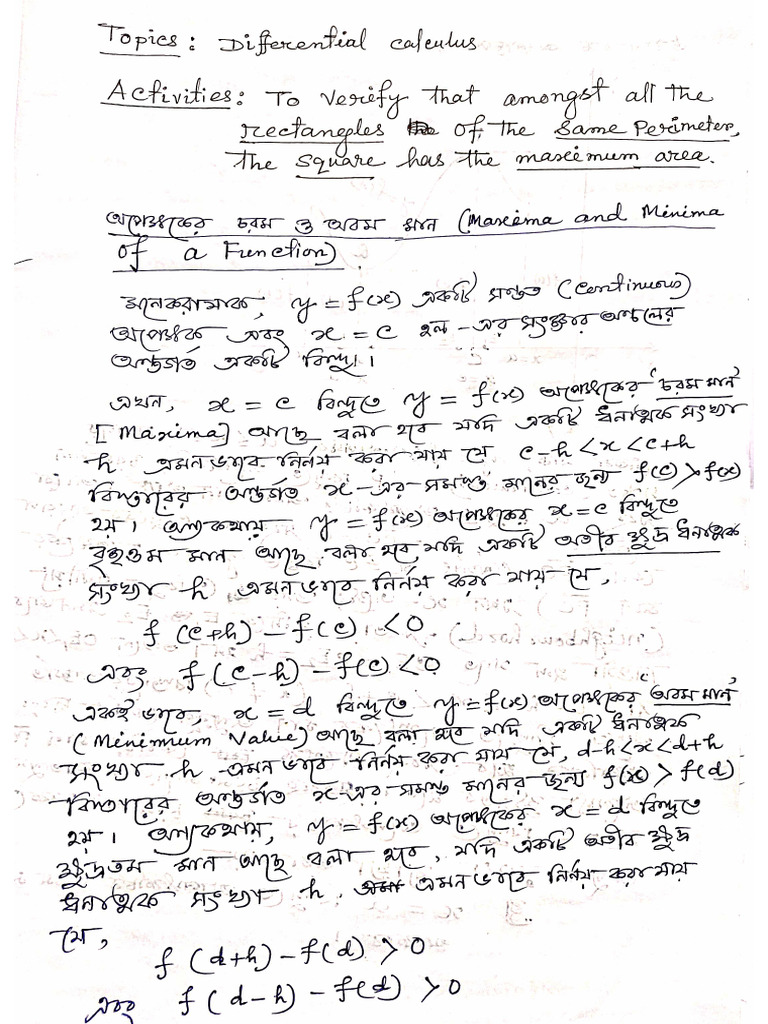 Topics: Differential calculus
Activities: To verify that amongst all the
rectangles of the same Perimeter,
the square has the maximum area.
অপেক্ষকের চরম ও অবম মান (Maxima and Minima
of a Function).
মনেকরাযাক, y = f(x) একটি সন্তত (continuous)
অপেক্ষক এবং x = c হল -এর সংজ্ঞার অঞ্চলের
অন্তর্গত একটি বিন্দু।
এখন, x = c বিন্দুতে y = f(x) অপেক্ষকের 'চরম মান'
[Maxima] আছে বলা হবে যদি একটি ধনাত্মক সংখ্যা
h এমন ভাবে নির্নয় করা যায় যে c-h < x < c+h
বিস্তারের অন্তর্গত x-এর সমস্ত মানের জন্য f(c) > f(x)
হয়। অন্যকথায় y = f(x) অপেক্ষকের x = c বিন্দুতে
বৃহত্তম মান আছে বলা হবে, যদি একটি অতীব ক্ষুদ্র ধনাত্মক
সংখ্যা h এমন ভাবে নির্নয় করা যায় যে,
f(c+h) - f(c) < 0
এবং f(c-h) - f(c) < 0
একই ভাবে, x = d বিন্দুতে y = f(x) অপেক্ষকের 'অবম মান'
(Minimum Value) আছে বলা হবে যদি একটি ধনাত্মক
সংখ্যা h এমন ভাবে নির্নয় করা যায় যে, d-h < x < d+h
বিস্তারের অন্তর্গত x-এর সমস্ত মানের জন্য f(x) > f(d)
হয়। অন্যকথায়, y = f(x) অপেক্ষকের x = d বিন্দুতে
ক্ষুদ্রতম মান আছে বলা হবে, যদি একটি অতীব ক্ষুদ্র
ধনাত্মক সংখ্যা h এমন ভাবে নির্নয় করা যায়
যে,
f(d+h) - f(d) > 0
এবং f(d-h) - f(d) > 0